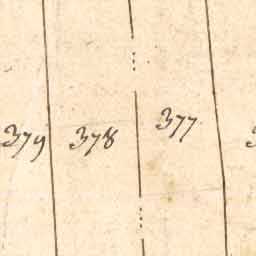 379 378 377